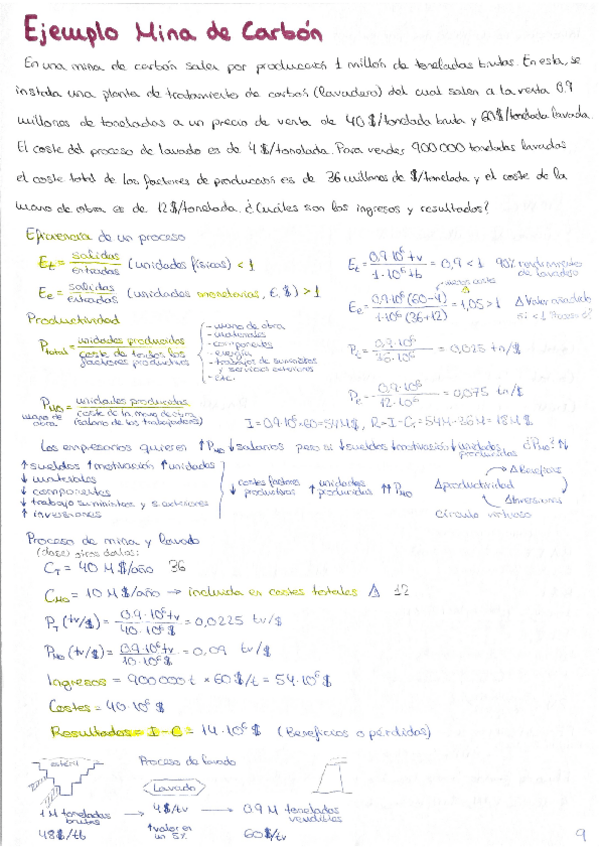 Ejemplo Mina de Carbón
En una mina de carbón salen por producción 1 millón de toneladas brutas. En esta, se
instala una planta de tratamiento de carbón (lavadero) del cual salen a la venta 0,9
millones de toneladas a un precio de venta de 40 $/tonelada bruta y 60 $/tonelada lavada.
El coste del proceso de lavado es de 4 $/tonelada. Para vender 900 000 toneladas lavadas
el coste total de los factores de producción es de 36 millones de $/tonelada y el coste de la
mano de obra es de 12 $/tonelada. ¿Cuáles son los ingresos y resultados?
Eficiencia de un proceso
Et = salidas / entradas (unidades físicas) < 1
Et = 0,9·10⁶ tv / 1·10⁶ tb = 0,9 < 1 90% rendimiento de lavadero
Ee = salidas / entradas (unidades monetarias, €, $) > 1
Ee = 0,9·10⁶ (60-4) / 1·10⁶ (36+12) = 1,05 > 1 Δ Valor añadido
Productividad
Ptotal = unidades producidas / coste de todos los factores productivos
- mano de obra
- materiales
- componentes
- energía
- trabajos de suministros y servicios exteriores
- etc.
Pt = 0,9·10⁶ / 36·10⁶ = 0,025 tn/$
PMO = unidades producidas / coste de la mano de obra (salario de los trabajadores)
mano de obra
= 0,9·10⁶ / 12·10⁶ = 0,075 tn/$
I = 0,9·10⁶·60 = 54M$, R = I - Ct = 54M - 36M = 18M$
Los empresarios quieren ↑PMO ↓salarios pero si ↓sueldos ↓motivación ↓unidades producidas ¿PMO? ↑↓
↑ sueldos ↑motivación ↑unidades
↓ materiales
↓ componentes
↓ trabajo suministros y s. exteriores
↑ inversiones
↓ costes factores productivos ↑ unidades producidas ↑↑ PMO
Δ Beneficios
Δ productividad
Δ Inversiones
Círculo virtuoso
Proceso de mina y lavado
otros datos:
CT = 40 M $/año 36
CMO = 10 M $/año → incluida en costes totales Δ 12
PT (tv/$) = 0,9·10⁶ tv / 40·10⁶ $ = 0,0225 tv/$
PMO (tv/$) = 0,9·10⁶ tv / 10·10⁶ $ = 0,09 tv/$
Ingresos = 900 000 t × 60 $/t = 54·10⁶ $
Costes = 40·10⁶ $
Resultados = I - C = 14·10⁶ $ (Beneficios o pérdidas)
estéril
Proceso de lavado
Lavado
1 M toneladas brutas → 4$/tv → 0,9 M toneladas vendibles
48$/tb
↑valor en un 5%
60$/tv
9